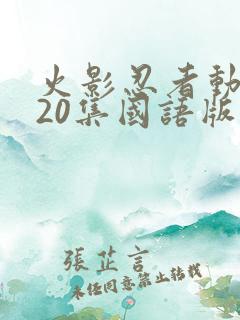 火影忍者動
20集國語版
張芷言
未任同意禁止转载